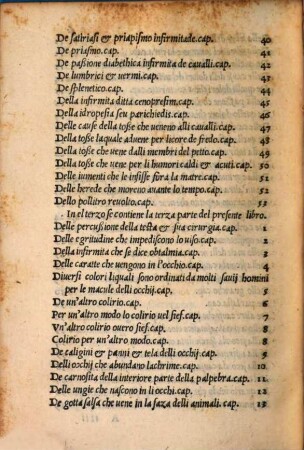 De satiriasi & priapismo infirmitade.cap. 40
De priasmo.cap. 41
De passione diabethica infirmita de caualli.cap. 42
De lumbrici & uermi.cap. 43
De splenetico.cap. 44
Della infirmita ditta cenotresim.cap. 45
Della idropesia seu parichiedis.cap. 46
Delle cause della tosse che ueneno alli caualli.cap. 47
Della tosse laquale aduene per licore de fredo.cap. 48
Della tosse che uene dalli membri del petto.cap. 49
Della tosse che uene per li humori caldi & acuti.cap. 50
Delle iumenti che le insisse fora la matre.cap. 51
Delle herede che moreno auante lo tempo.cap. 52
Dello pollitro reuolio.cap. 53
In el terzo se contiene la terza parte del presente libro.
Delle percussione della testa & sua cirurgia.cap. 1
Delle egritudine che impediscono lo uiso.cap. 2
Della infirmita che se dice obtalmia.cap. 3
Delle caratte che uengono in l'occhio.cap. 4
Diuersi colori liquali sono ordinati da molti sauij homini
per le macule delli occhij.cap. 5
De un'altro colirio.cap. 6
Per un'altro modo lo colirio uel sief.cap. 7
Vn'altro colirio ouero sief.cap. 8
Colirio per un'altro modo.cap. 8
De caligini & panni & tela delli occhij.cap. 5
Delli occhij che abundano lachrime.cap. 10
De carnosita della interiore parte della palpebra.cap. 11
Delle ungie che nascono in li occhi.cap. 12
De gotta salsa che uene in la faza delli animali.cap. 13